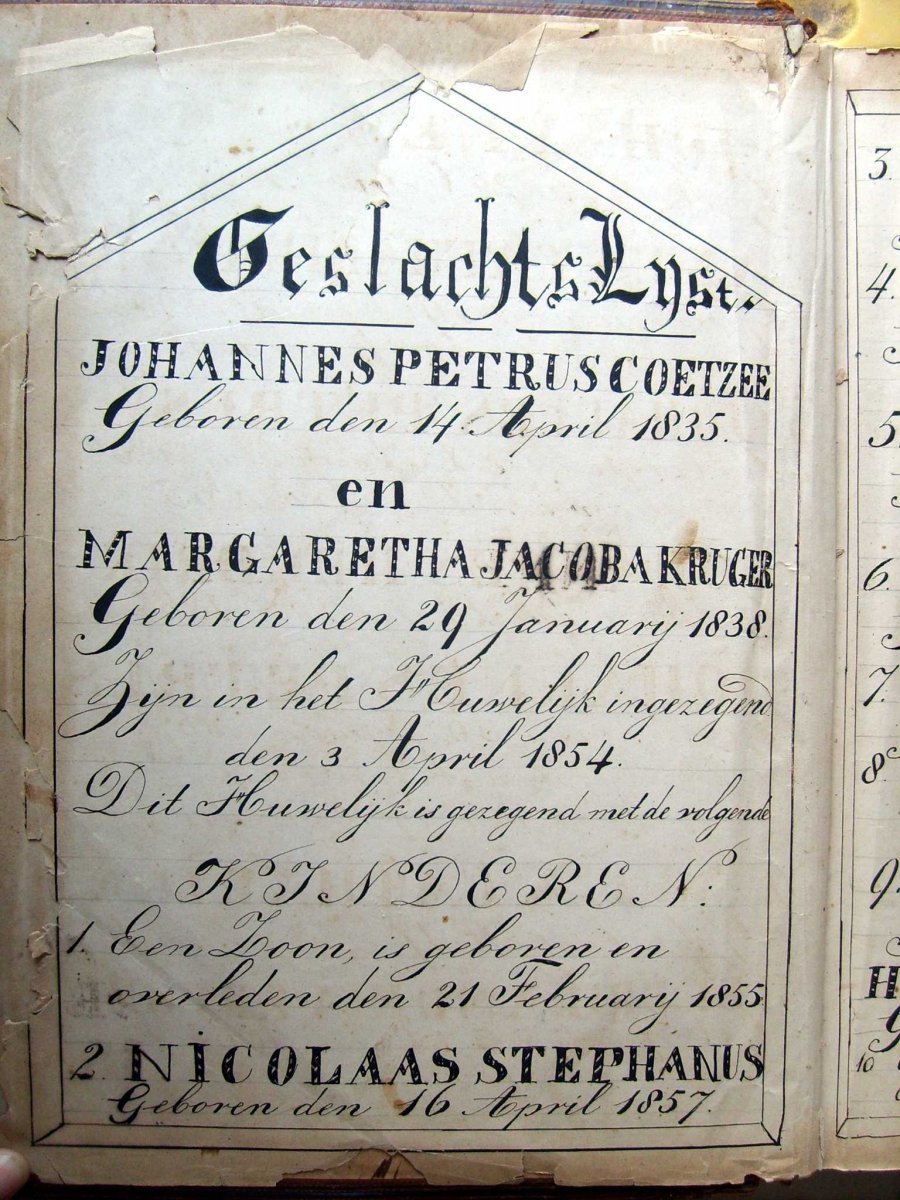 GeslachtsLyst.
JOHANNES PETRUS COETZEE
Geboren den 14 April 1835.
en
MARGARETHA JACOBA KRUGER
Geboren den 29 Januarij 1838.
Zijn in het Huwelijk ingezegend
den 3 April 1854.
Dit Huwelijk is gezegend met de volgende
KINDEREN:
1. Een Zoon, is geboren en
overleden den 21 Februarij 1855
2. NICOLAAS STEPHANUS
Geboren den 16 April 1857.
3.
4.
5.
6.
7.
8.
9.
H
G
10